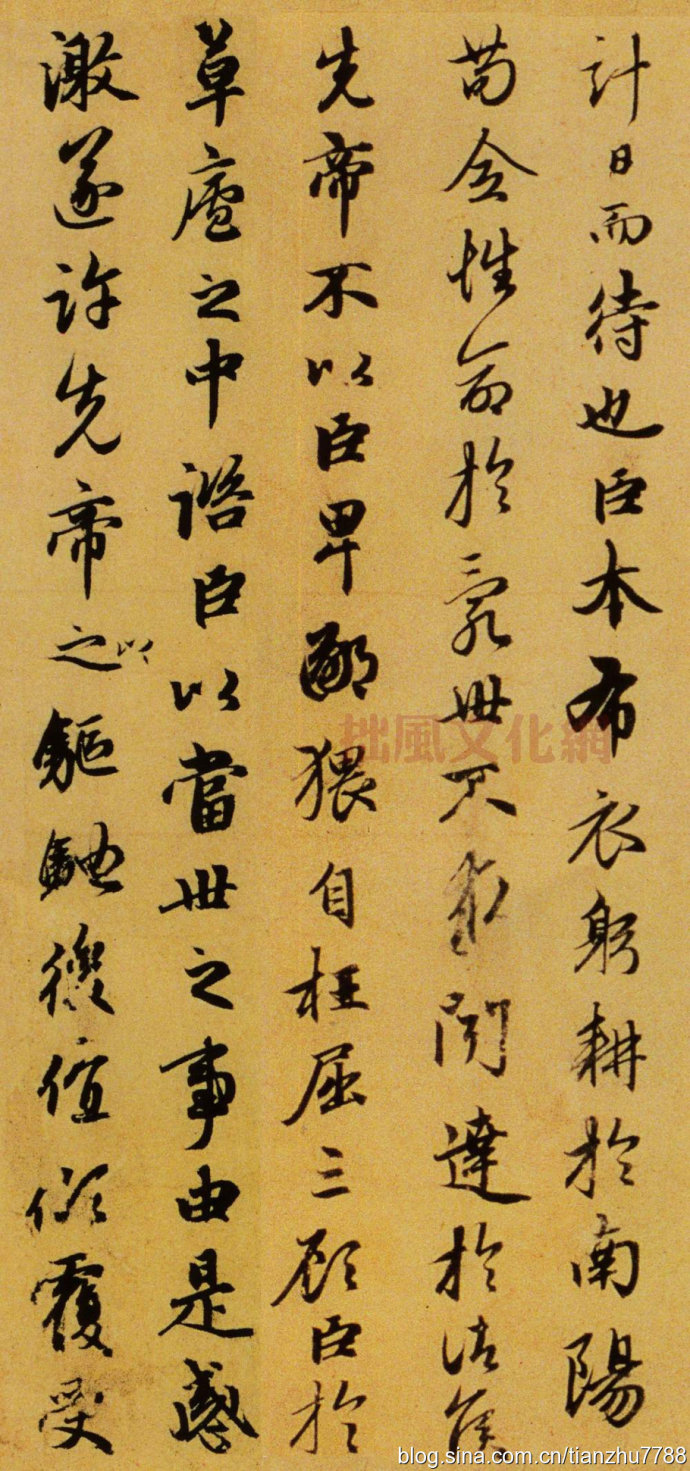 計日而待也臣本布衣躬耕於南陽
苟全性命於亂世不求聞達於諸侯
先帝不以臣卑鄙猥自枉屈三顧臣於
草廬之中諮臣以當世之事由是感
激遂許先帝之以驅馳後值傾覆受
拙風文化網
blog.sina.com.cn/tianzhu7788